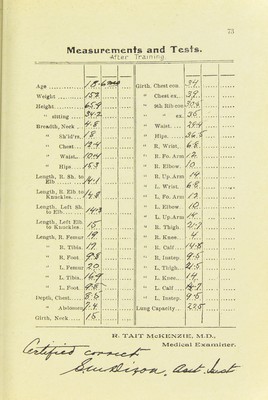 73
Measurements and Tests.
After Training
Age 18
Weight 152
Height 65.9
" sitting 34.2
Breadth, Neck 4.8
" Sh'ld'rs, 18
" Chest 12.4
" Waist, 10.4
" Hips 15.3
Length, R. Sh. to Elb 14.1
Length, R Elb to Knuckles 14.8
Length, Left Sh. to Elb 14.3
Length, Left Elb to Knuckles 15
Length, R. Femur 19
" R. Tibia 17
" R. Foot, 9.8
" L. Femur 20
" L. Tibia, 16.9
" L. Foot,
Depth, Chest,
" Abdomen 7.4
Girth, Neck 15
Girth, Chest con 34
" Chest ex 38
" 9th Rib con 30.8
" " ex. 35
" Waist 29.4
" Hips 36.5
" R. Wrist, 6.8
" R. Fo. Arm 12
" R. Elbow, 10
" R. Up. Arm 14
" L. Wrist, 6.8
" L. Fo. Arm 12
" L. Elbow, 10
" L. Up. Arm 14
" R. Thigh 21.7
" R. Knee 14
" R. Calf 14.8
" R. Instep, 9.5
" L. Thigh, 21.5
" L. Knee, 14
" L. Calf 14.7
" L. Instep, 9.5
Lung Capacity 225
R. TAIT McKENZIE, M.D.,
Medical Examiner.
Certified correct